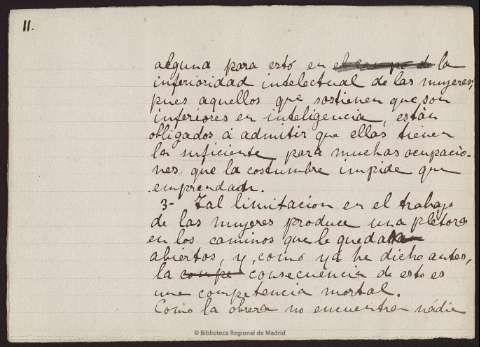 11.
alguna para esto en el campo de la
inferioridad intelectual de las mujeres,
pues aquellos que sostienen que son
inferiores en inteligencia, están
obligados á admitir que ellas tienen
la suficiente para muchas ocupacio-
nes, que la costumbre impide que
emprendan.
3- Tal limitacion en el trabajo
de las mujeres produce una pletora
en los caminos que le quedan
abiertos, y, como ya he dicho antes,
la consecuencia de esto es
una competencia mortal.
Como la obrera no encuentra nadie
© Biblioteca Regional de Madrid